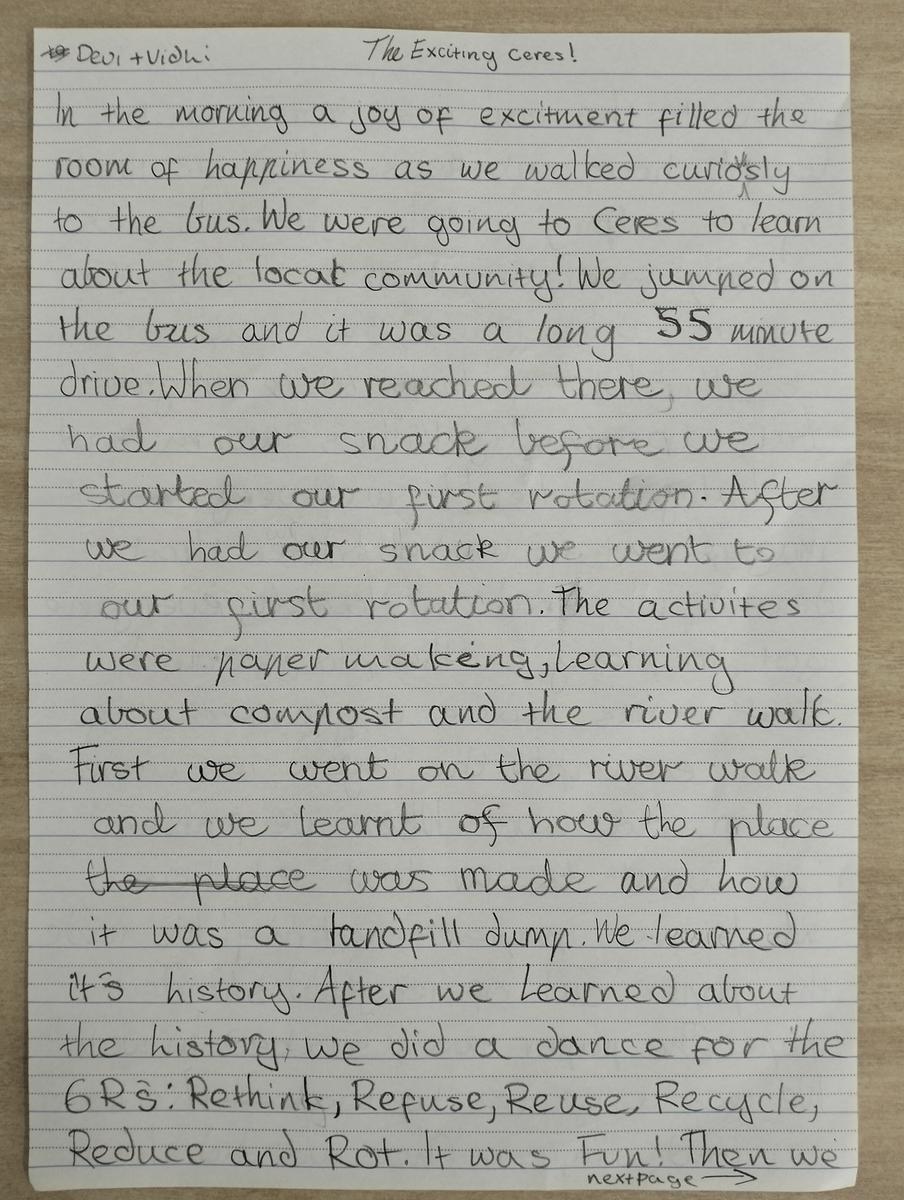 Devi + Vidhi The Exciting Ceres!
In the morning a joy of excitment filled the
room of happiness as we walked curiosly
to the bus. We were going to Ceres to learn
about the local community! We jumped on
the bus and it was a long 55 minute
drive. When we reached there, we
had our snack before we
started our first rotation. After
we had our snack we went to
our first rotation. The activites
were paper making, learning
about compost and the river walk.
First we went on the river walk
and we learnt of how the place
the place was made and how
it was a landfill dump. We learned
it's history. After we learned about
the history, we did a dance for the
6R's: Rethink, Refuse, Reuse, Recycle,
Reduce and Rot. It was Fun! Then we
next page →